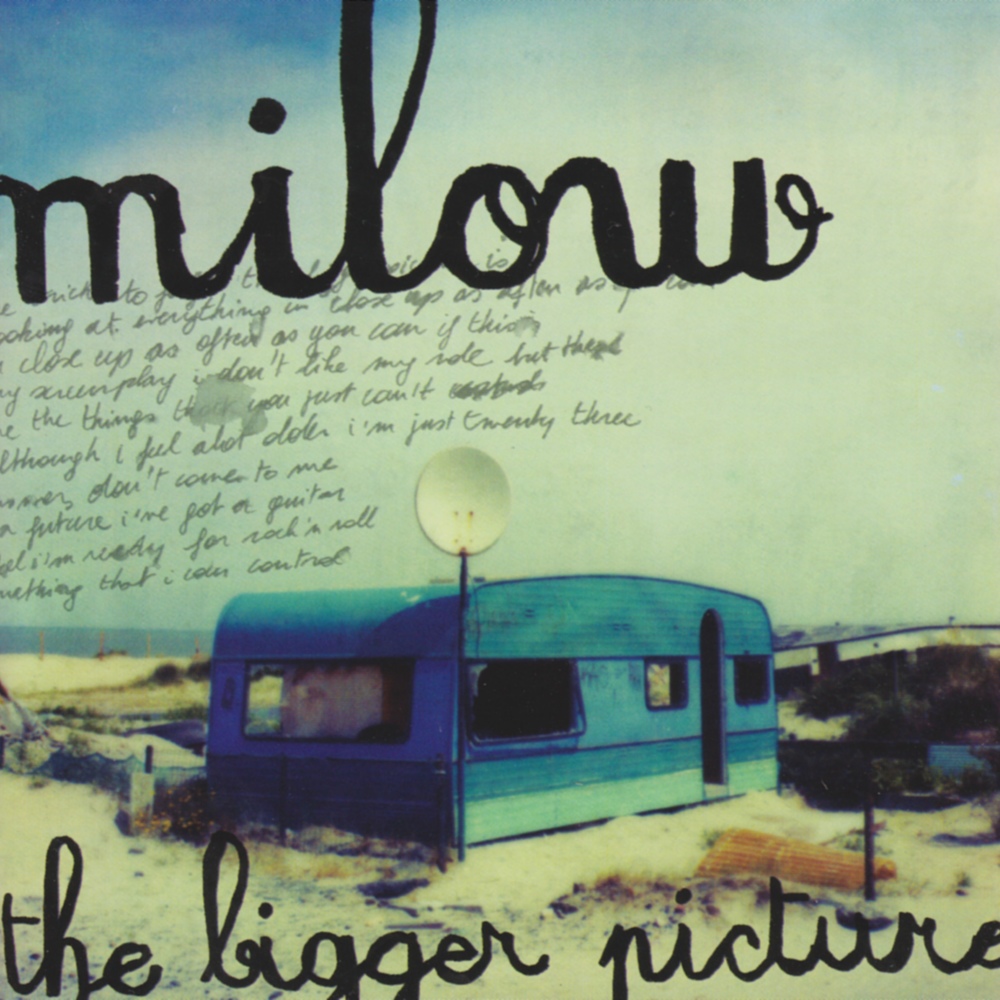 milow
looking at everything in close up as often as
close up as often as you can if this
my screenplay i don't like my role but
the things that you just can't
although i feel alot older i'm just twenty three
don't come to me
a future i've got a guitar
i'm ready for rock'n roll
something that i can control
the bigger picture